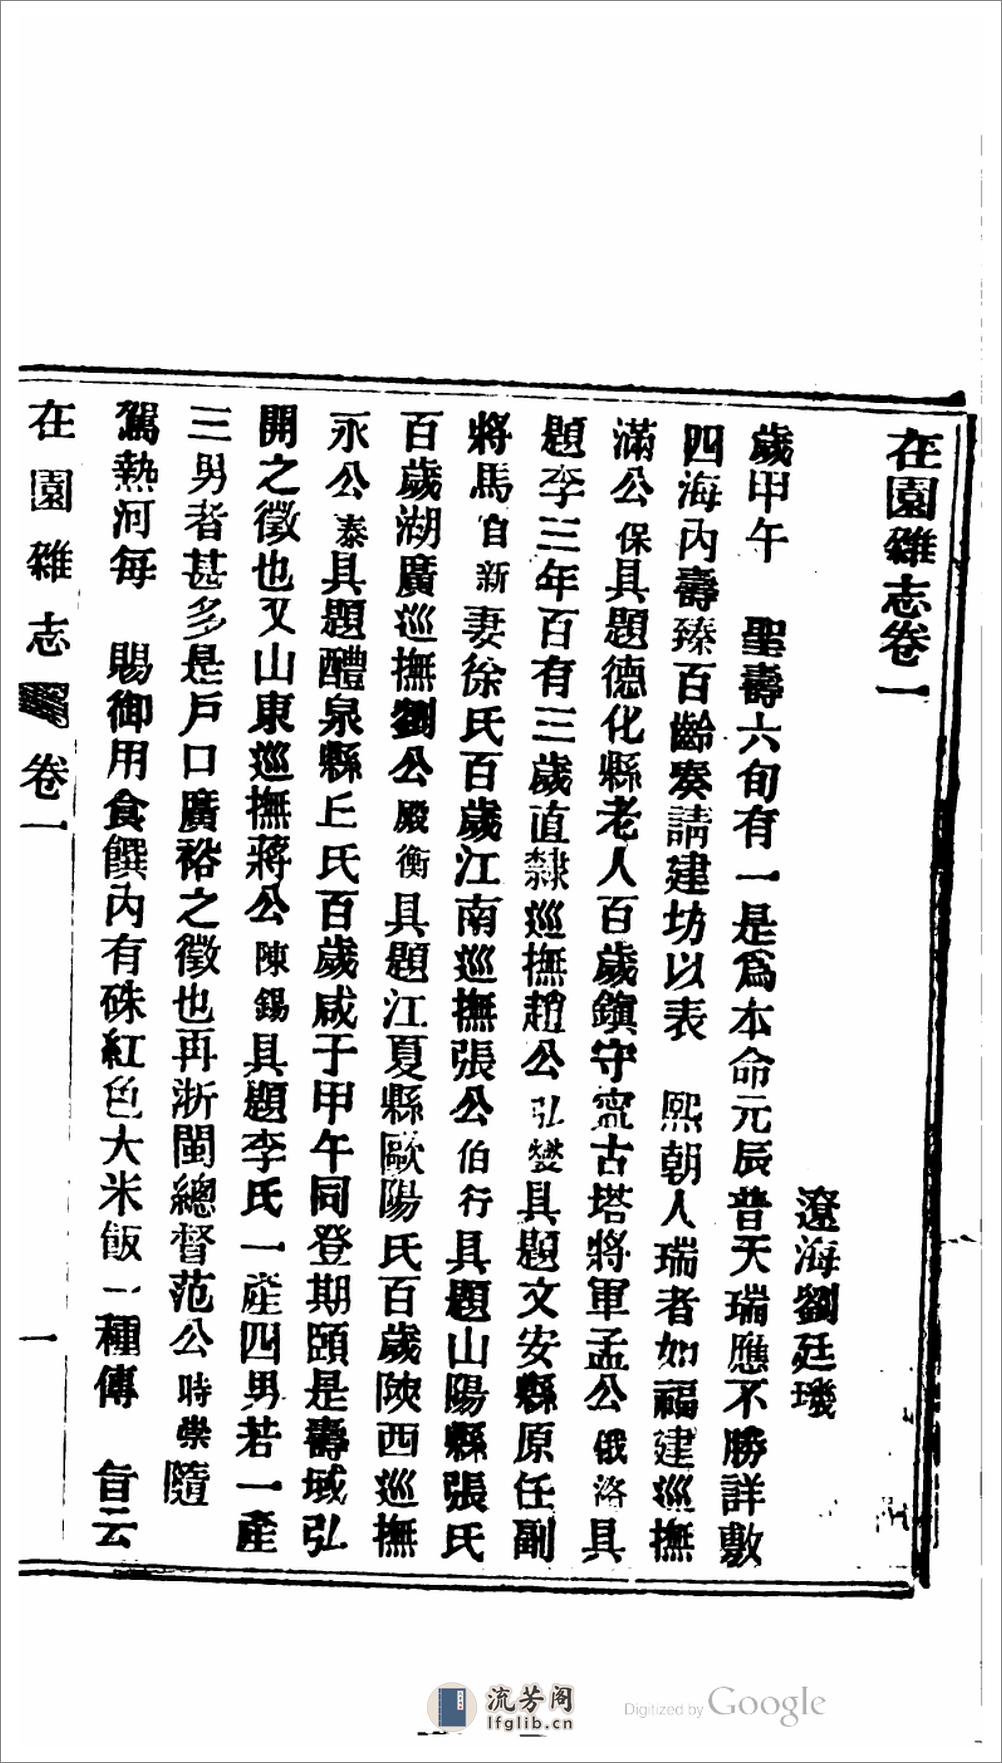 在園雜志卷一
遼海劉廷璣
歲甲午　聖壽六旬有一是爲本命元辰普天瑞應不勝詳數
四海內壽臻百齡奏請建坊以表　熙朝人瑞者如福建巡撫
滿公保具題德化縣老人百歲鎭守寧古塔將軍孟公俄洛具
題李三年百有三歲直隸巡撫趙公弘燮具題文安縣原任副
將馬自新妻徐氏百歲江南巡撫張公伯行具題山陽縣張氏
百歲湖廣巡撫劉公殿衡具題江夏縣歐陽氏百歲陝西巡撫
永公泰具題醴泉縣丘氏百歲咸于甲午同登期頤是壽域弘
開之徵也又山東巡撫蔣公陳錫具題李氏一產四男若一產
三男者甚多是戶口廣裕之徵也再浙閩總督范公時崇隨
駕熱河每　賜御用食饌內有硃紅色大米飯一種傳　旨云
在園雜志　卷一　一
流芳阁
lfglib.cn
Digitized by Google